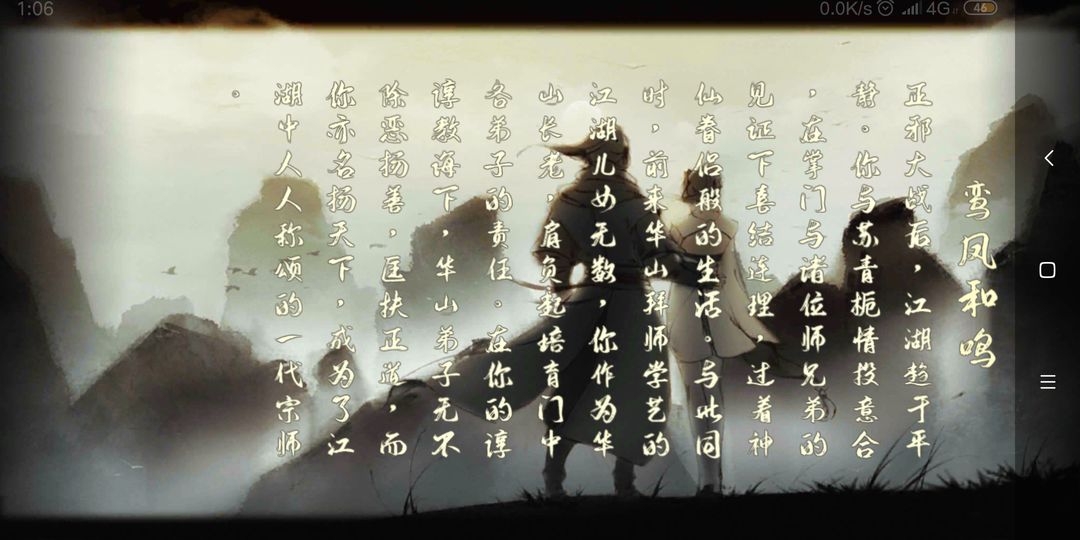 1:06
0.0K/s
4G
46
鸾凤和鸣
正邪大战后，江湖趋于平
静。你与苏青栀情投意合
，在掌门与诸位师兄弟的
见证下喜结连理，过着神
仙眷侣般的生活。与此同
时，前来华山拜师学艺的
江湖儿女无数，你作为华
山长老，肩负起培育门中
各弟子的责任。在你的谆
谆教诲下，华山弟子无不
除恶扬善，匡扶正道，而
你亦名扬天下，成为了江
湖中人人称颂的一代宗师
。